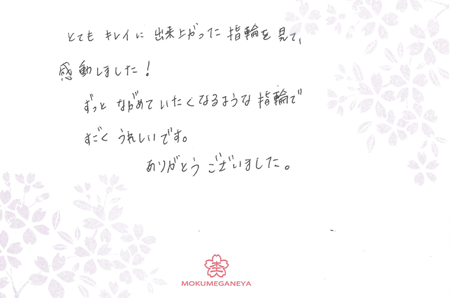 とても キレイに 出来上がった 指輪を 見て、
感動しました！
ずっと ながめていたくなるような 指輪で
すごく うれしいです。
ありがとう ございました。
MOKUMEGANEYA